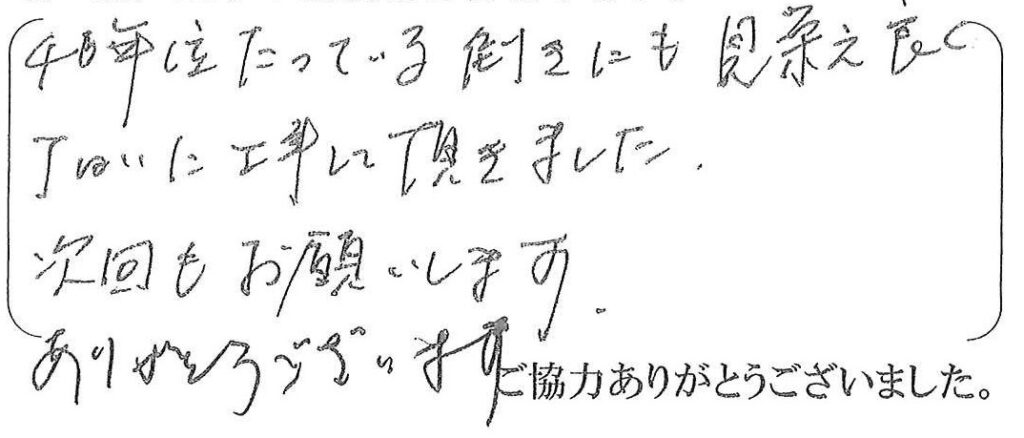 40年位たっている割きにも見栄え良く
丁ねいに工事して頂きました.
次回もお願いします.
ありがとうございます
ご協力ありがとうございました。